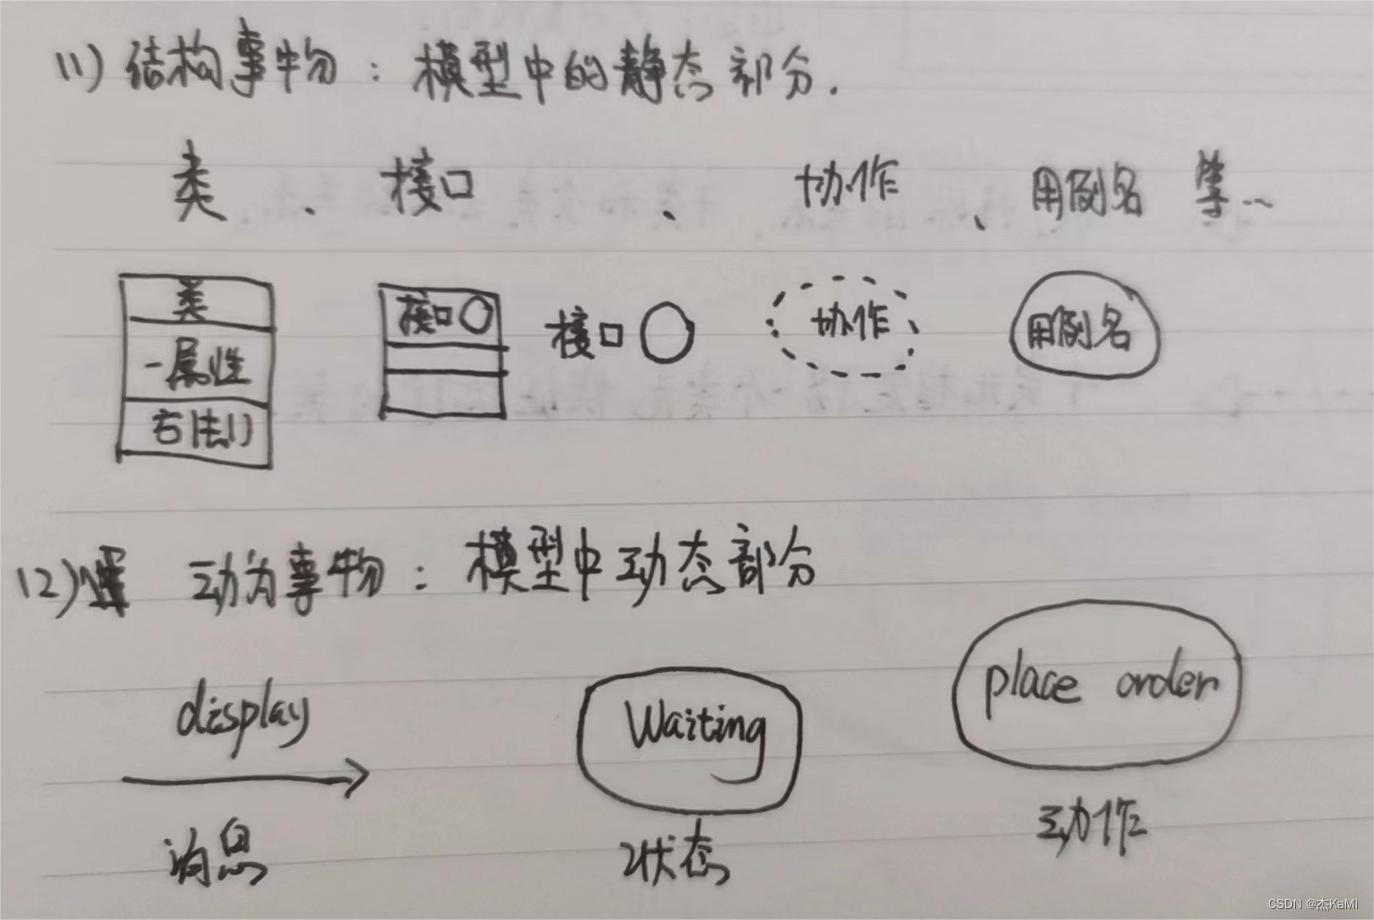 (1) 结构事物：模型中的静态部分.
类、接口、协作、用例名 等...
类
-属性
方法()
接口
接口
协作
用例名
(2) 动为事物：模型中动态部分
display
Waiting
place order
消息
状态
动作
CSDN @杰KaMi